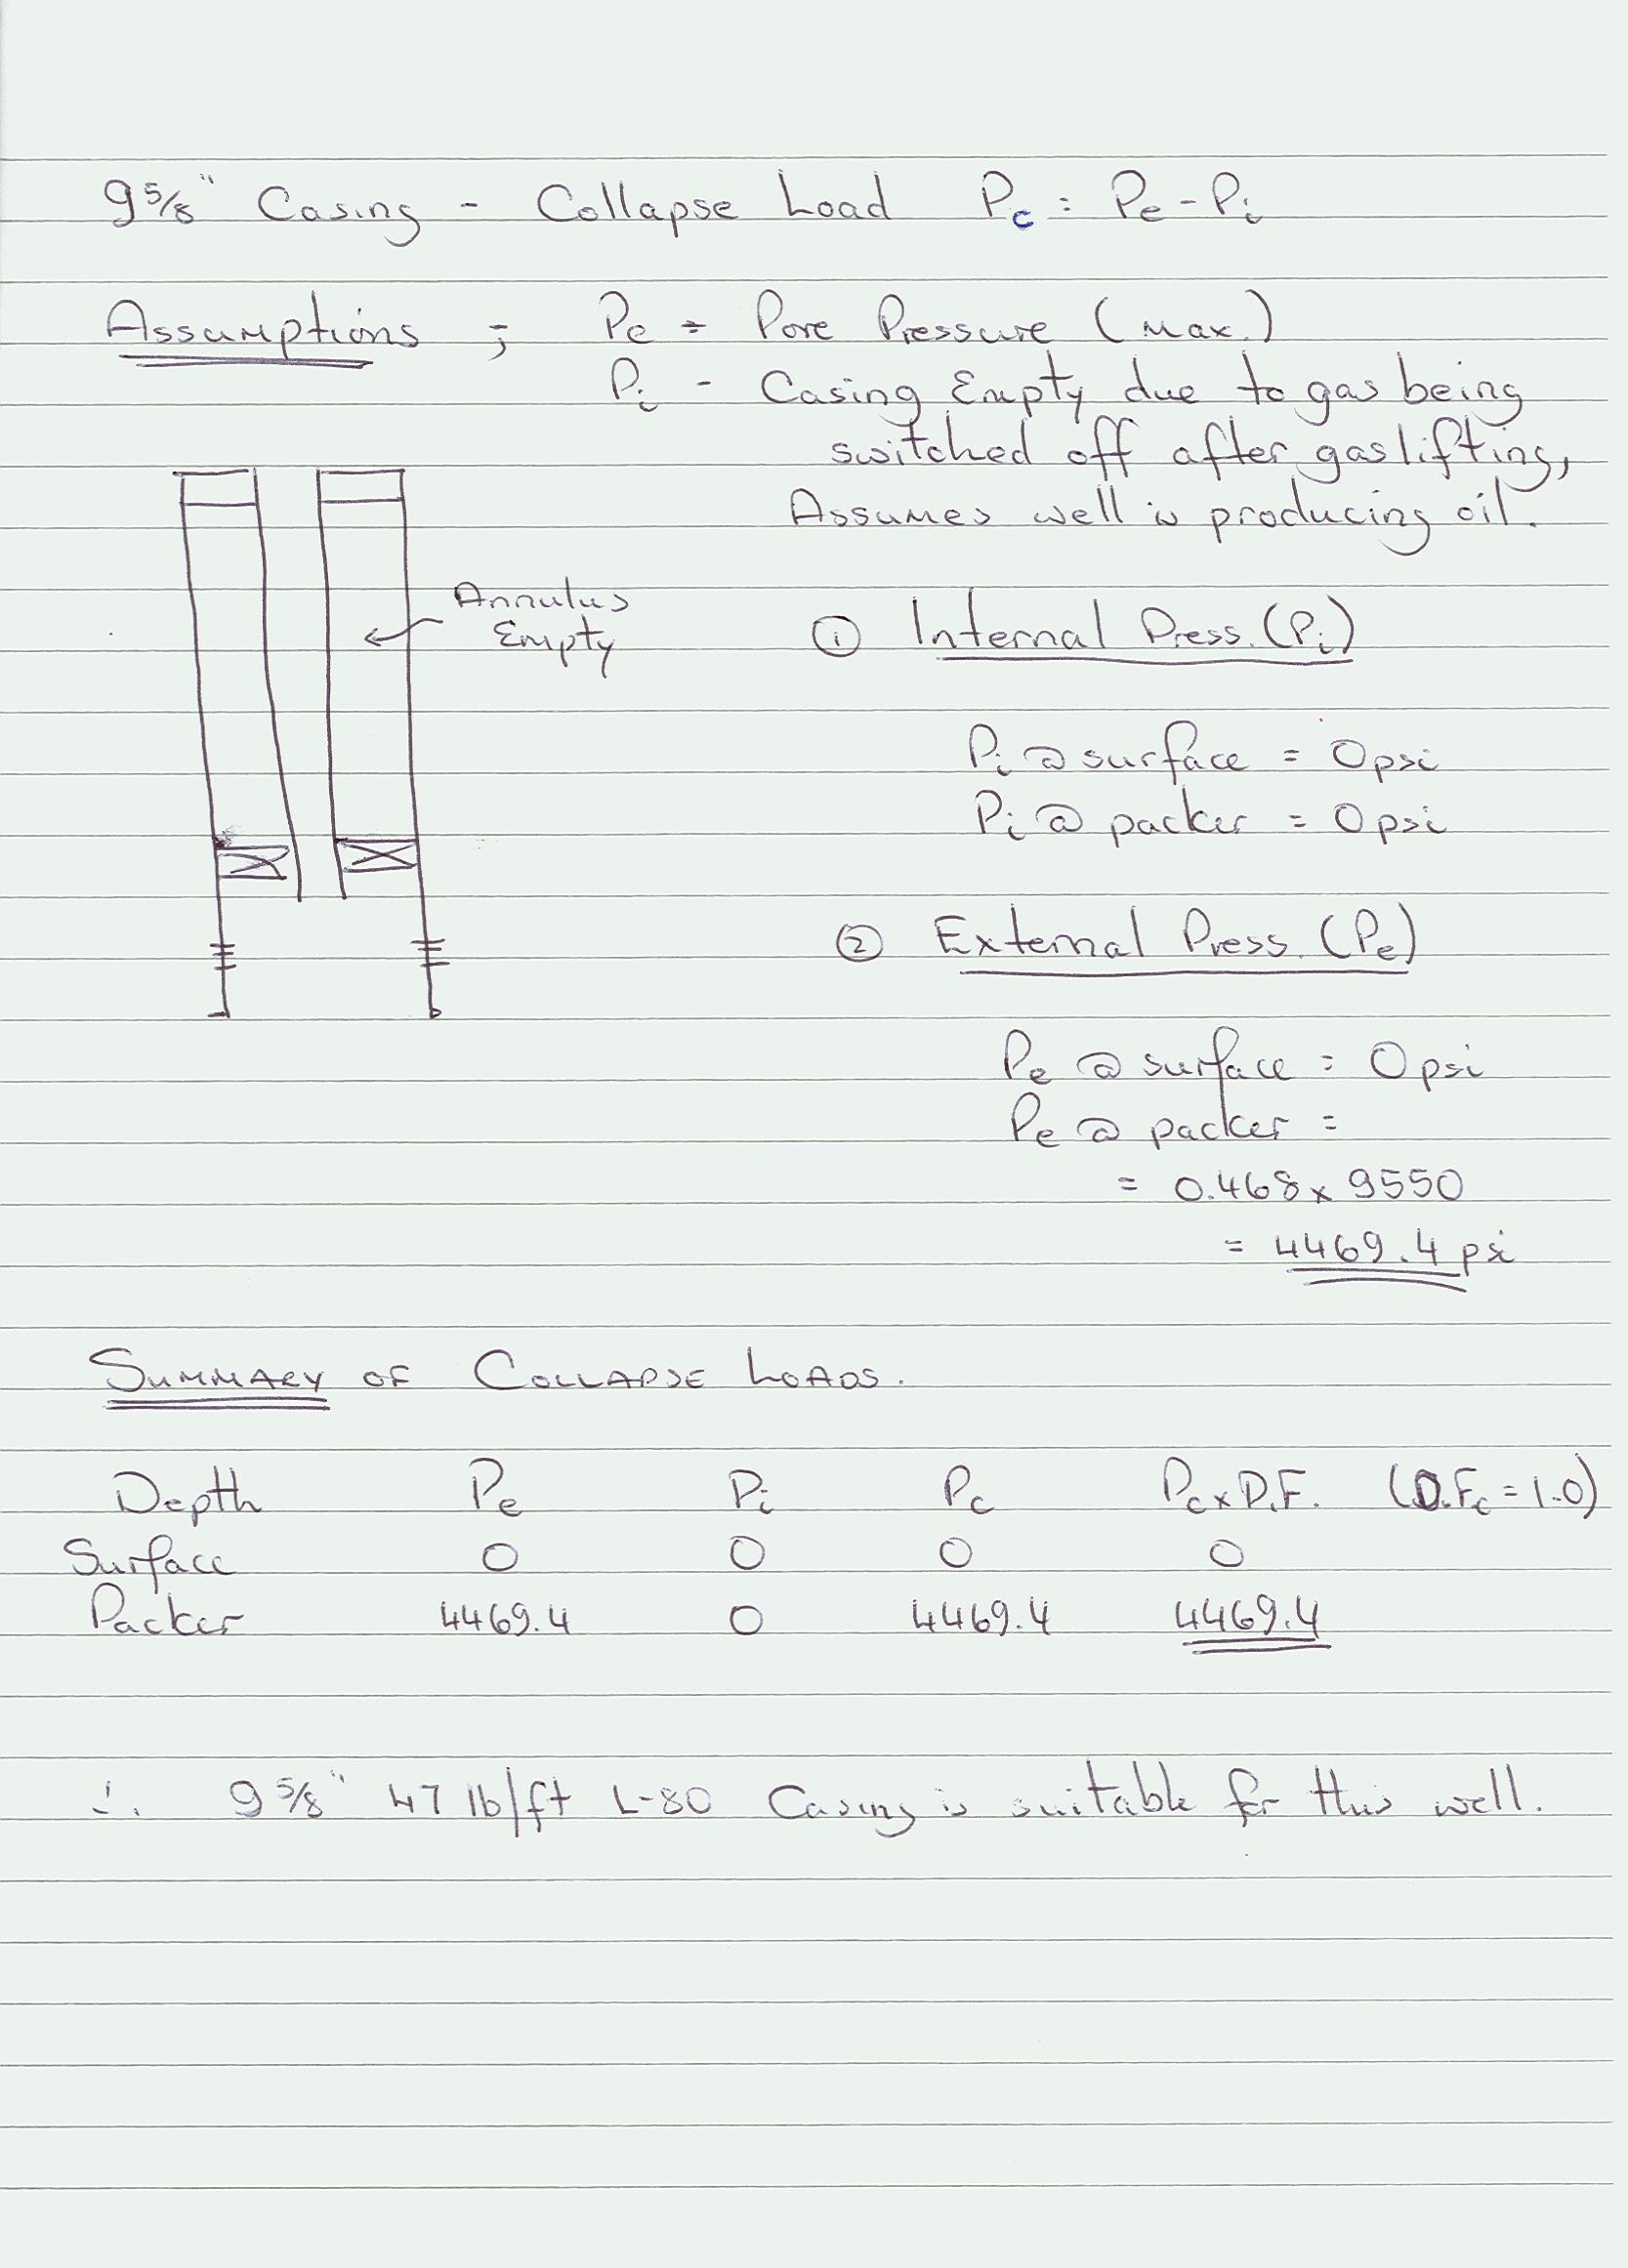 9 5/8" Casing - Collapse Load Pc = Pe - Pi
Assumptions ; Pe = Pore Pressure (Max.)
Pi - Casing Empty due to gas being
switched off after gaslifting,
Assumes well is producing oil.
Annulus
Empty
① Internal Press. (Pi)
Pi @ surface = 0 psi
Pi @ packer = 0 psi
② External Press. (Pe)
Pe @ surface = 0 psi
Pe @ packer =
= 0.468 x 9550
= 4469.4 psi
SUMMARY OF COLLAPSE LOADS.
Depth Pe Pi Pc Pc x D.F. (D.Fc = 1.0)
Surface 0 0 0 0
Packer 4469.4 0 4469.4 4469.4
∴ 9 5/8" 47 lb/ft L-80 Casing is suitable for this well.